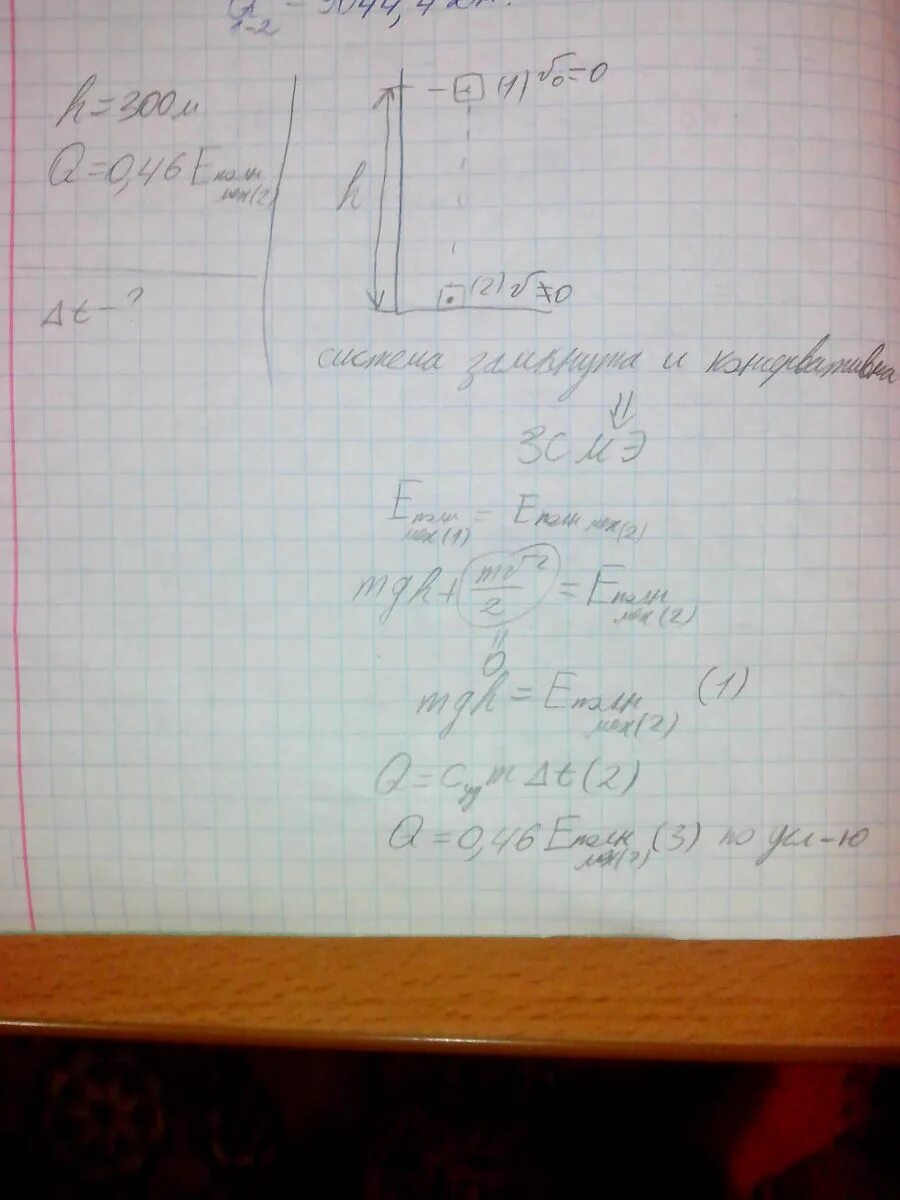 Q 1-2 = 3044,4 Дж.
h = 300 м
Q = 0,46 E полн мех(2)
Δt - ?
(1) v₀ = 0
h
(2) v ≠ 0
система замкнута и консервативна
⇓
ЗСМЭ
E полн мех(1) = E полн мех(2)
mgh + mv²/2 = E полн мех(2)
"
0
mgh = E полн мех(2) (1)
Q = C уд m Δt (2)
Q = 0,46 E полн мех(2) (3) по усл-ю